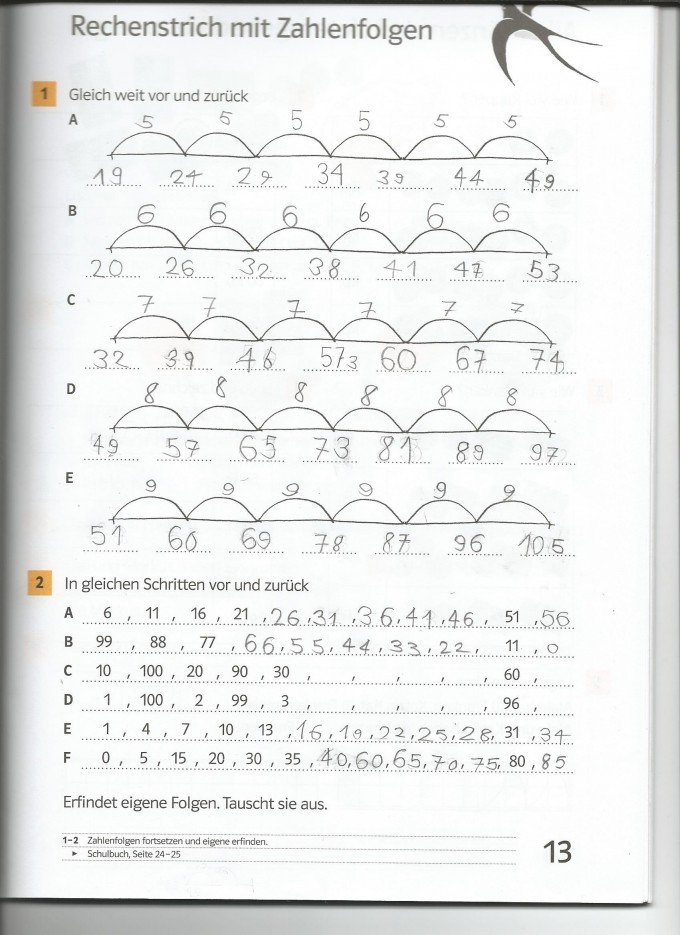 Rechenstrich mit Zahlenfolgen
1 Gleich weit vor und zurück
A 5 5 5 5 5 5
19 24 29 34 39 44 49
B 6 6 6 6 6 6
20 26 32 38 41 47 53
C 7 7 7 7 7 7
32 39 46 573 60 67 74
D 8 8 8 8 8 8
49 57 65 73 81 89 97
E 9 9 9 9 9 9
51 60 69 78 87 96 105
2 In gleichen Schritten vor und zurück
A 6 , 11 , 16 , 21 , 26 , 31 , 36 , 41 , 46 , 51 , 56
B 99 , 88 , 77 , 66 , 55 , 44 , 33 , 22 , 11 , 0
C 10 , 100 , 20 , 90 , 30 , , , , , 60 ,
D 1 , 100 , 2 , 99 , 3 , , , , , 96 ,
E 1 , 4 , 7 , 10 , 13 , 16 , 19 , 22 , 25 , 28 , 31 , 34
F 0 , 5 , 15 , 20 , 30 , 35 , 40 , 60 , 65 , 70 , 75 , 80 , 85
Erfindet eigene Folgen. Tauscht sie aus.
1–2 Zahlenfolgen fortsetzen und eigene erfinden.
► Schulbuch, Seite 24–25
13